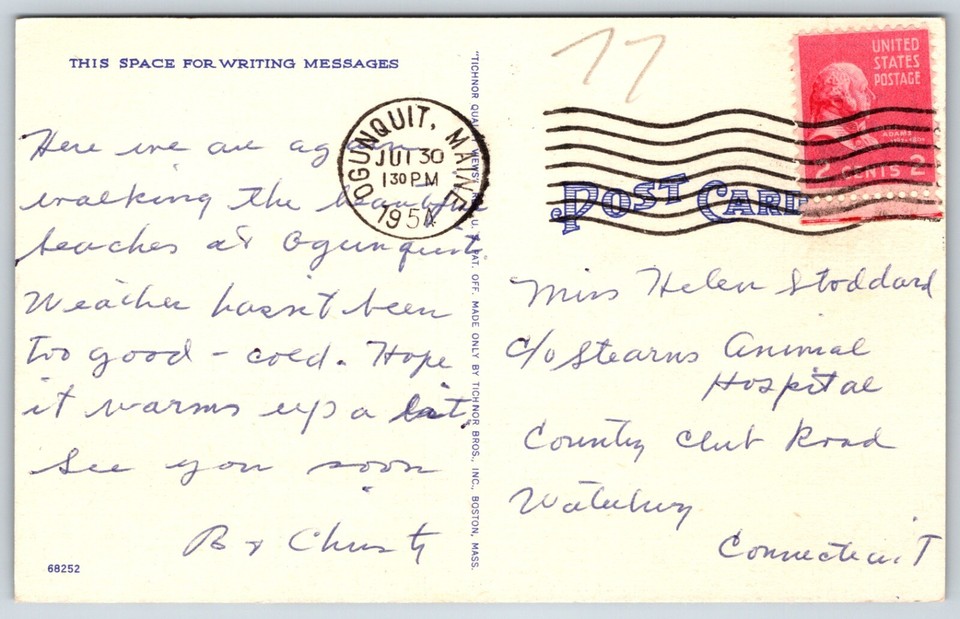 THIS SPACE FOR WRITING MESSAGES
Here we are again
walking the beautiful
beaches at Ogunquit.
Weather hasn't been
too good - cold. Hope
it warms up a bit.
See you soon
B & Christy
68252
OGUNQUIT, MAINE
30
1 30 PM
195
MADE ONLY BY TICHNOR BROS., INC., BOSTON, MASS.
77
UNITED
STATES
POSTAGE
ADAMS
2 CENTS 2
POST CARD
Miss Helen Stoddard
c/o Stearns Animal
Hospital
Country Club Road
Waterbury
Connecticut